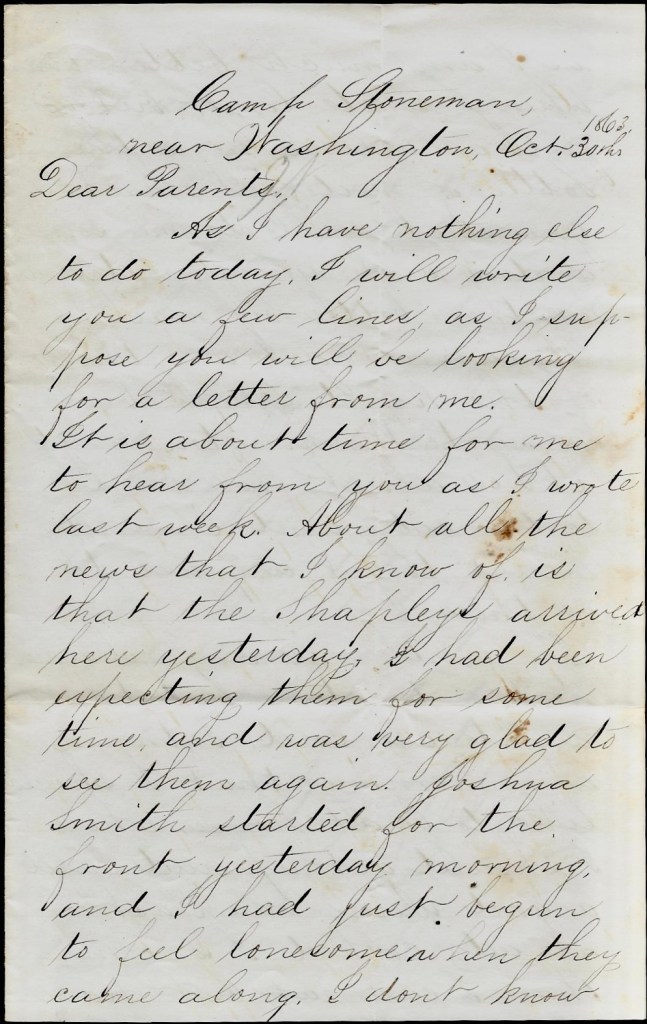 Camp Stoneman,
near Washington, Oct. 30th 1863,
Dear Parents,
As I have nothing else
to do today, I will write
you a few lines, as I sup-
pose you will be looking
for a letter from me.
It is about time for me
to hear from you as I wrote
last week. About all the
news that I know of, is
that the Shapleys arrived
here yesterday, I had been
expecting them for some
time, and was very glad to
see them again. Joshua
Smith started for the
front yesterday morning,
and I had just begun
to feel lonesome when they
came along. I dont know